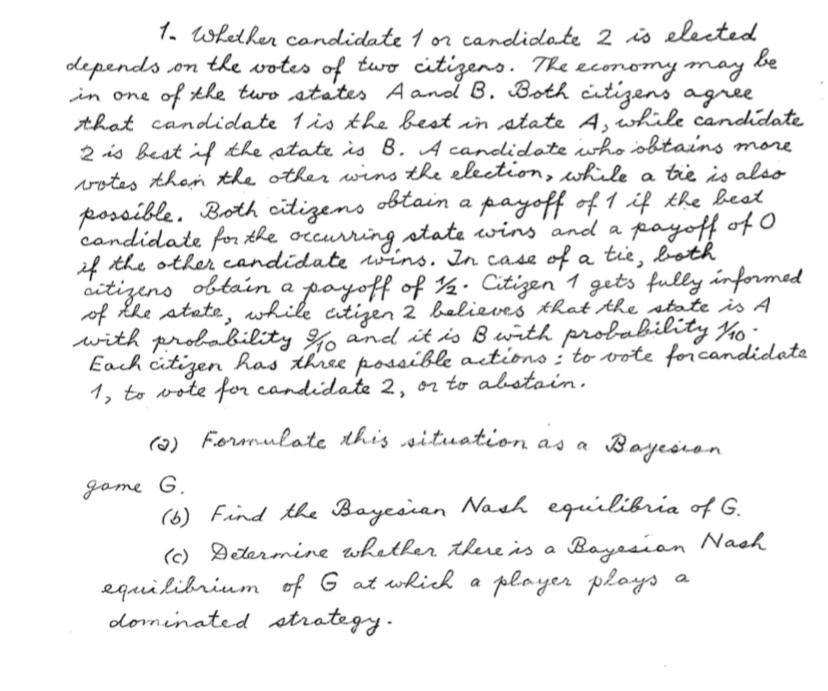 1. Whether candidate 1 or candidate 2 is elected
depends on the votes of two citizens. The economy may be
in one of the two states A and B. Both citizens agree
that candidate 1 is the best in state A, while candidate
2 is best if the state is B. A candidate who obtains more
votes than the other wins the election, while a tie is also
possible. Both citizens obtain a payoff of 1 if the best
candidate for the occurring state wins and a payoff of 0
if the other candidate wins. In case of a tie, both
citizens obtain a payoff of 1/2. Citizen 1 gets fully informed
of the state, while citizen 2 believes that the state is A
with probability 9/10 and it is B with probability 1/10.
Each citizen has three possible actions: to vote for candidate
1, to vote for candidate 2, or to abstain.
(a) Formulate this situation as a Bayesian
game G.
(b) Find the Bayesian Nash equilibria of G.
(c) Determine whether there is a Bayesian Nash
equilibrium of G at which a player plays a
dominated strategy.